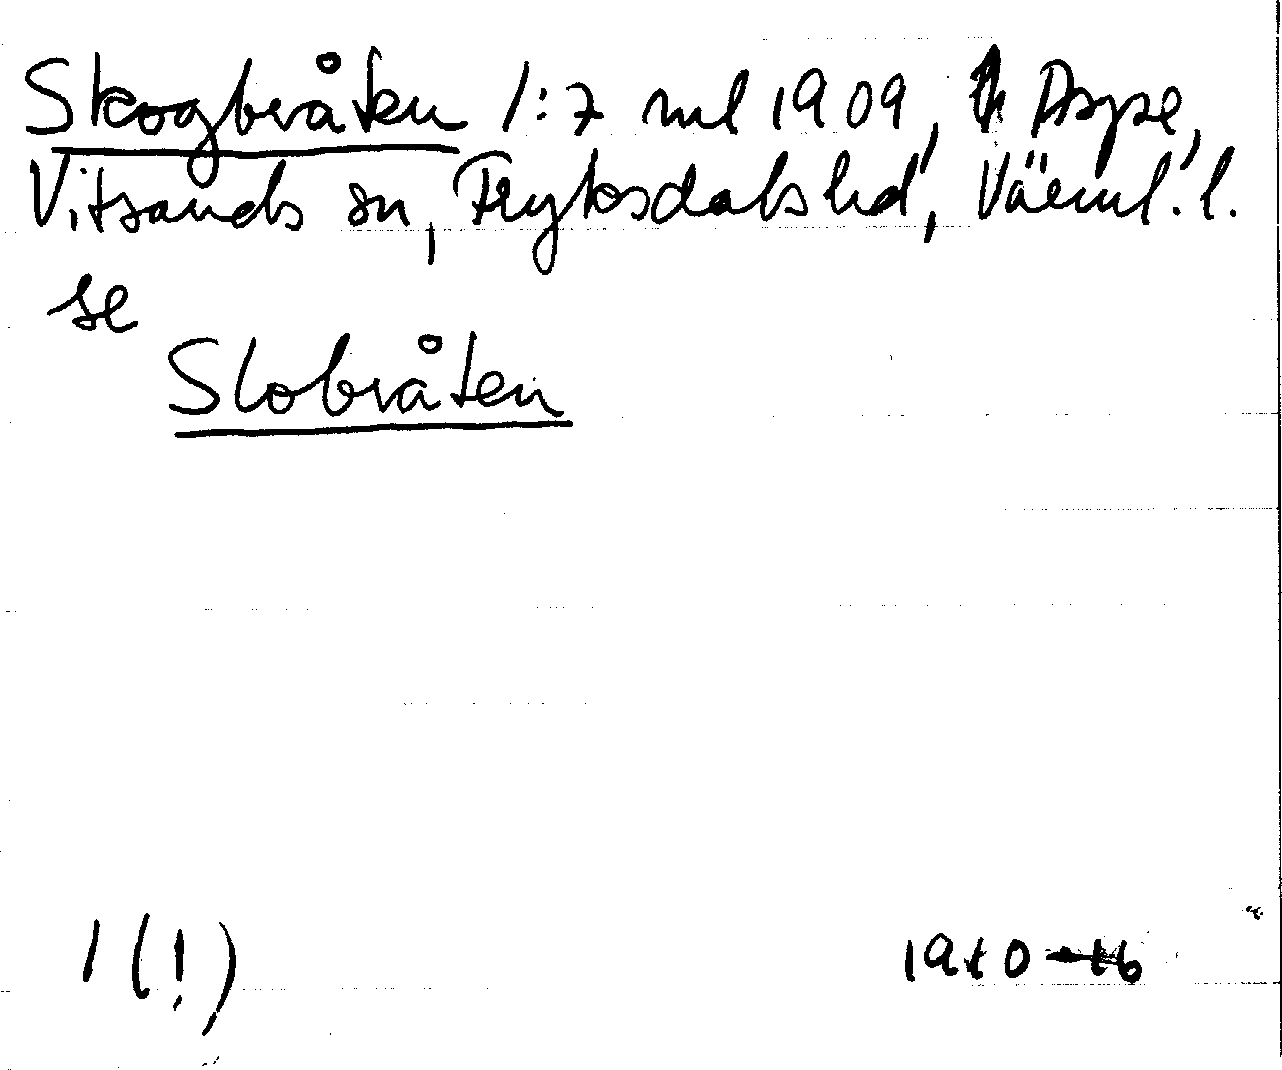 Skogbråten 1:7 ml 1909, Aspe,
Vitsands sn, Fryksdals hd, Värml. l.
se
Slobråten
1 (!)